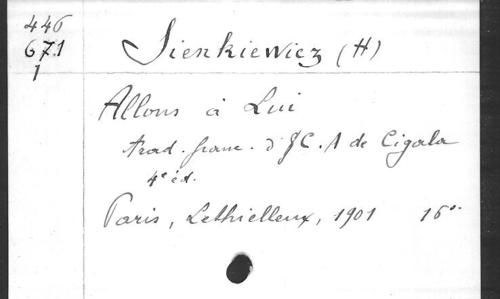 446
671
1
Sienkiewicz (H)
Allons à Lui
trad. franc. d' JC. A de Cigala
4e éd.
Paris, Lethielleux, 1901 16°